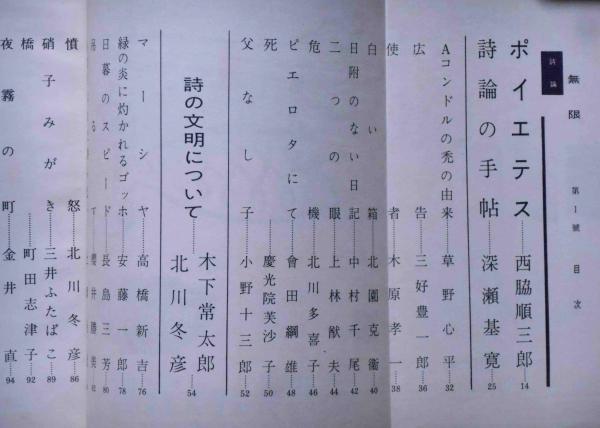 無限
第1號 目次
詩論
ポイエテス……西脇順三郎……14
詩論の手帖……深瀬基寛……25
Aコンドルの禿の由来……草野心平……32
広告……三好豊一郎……36
使者……木原孝一……38
白い箱……北園克衞……40
日附のない日記……中村千尾……42
二つの眼……上林猷夫……44
危機……北川多喜子……46
ピエロタにて……會田綱雄……48
死……慶光院芙沙子……50
父なし子……小野十三郎……52
詩の文明について……木下常太郎 北川冬彦……54
マーシヤ……高橋新吉……76
緑の炎に灼かれるゴッホ……安藤一郎……78
日暮のスピード……長島三芳……80
櫻井勝美……82
憤怒……北川冬彦……86
硝子みがき……三井ふたばこ……89
橋……町田志津子……92
夜霧の町……金井直……94